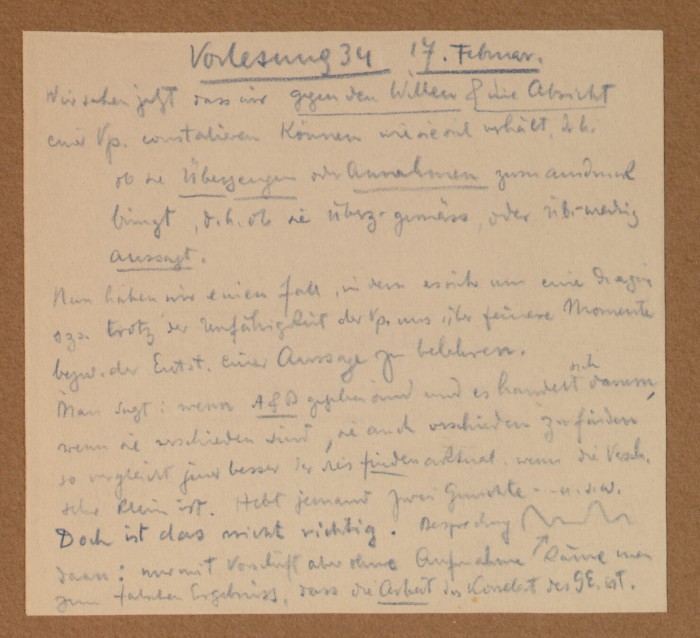 Vorlesung 34 17. Februar.
Wir sahen jetzt dass wir gegen den Willen & die Absicht
einer Vp. constatieren können wie sie sich verhält, d.h.
ob sie Überzeugungen oder Annahmen zum Ausdruck
bringt, d.h. ob sie überz.-gemäss, oder üb.-widrig
aussagt.
Nun haben wir einen Fall, in dem es sich um eine
trotz der Unfähigkeit der Vp. uns über feinere Momente
bezw. der Entst. einer Aussage zu belehren.
Man sagt: wenn A & B gegeben sind und es handelt sich darum,
wenn sie verschieden sind, sie auch verschieden zu finden
so vergleicht jener besser der dies finden wenn die Versch.
sehr klein ist. Hebt jemand zwei Gewichte - - u.s.w.
Doch ist das nicht richtig. Besprechung
daran: nur mit Vorschrift aber ohne Aufnahme käme man
zum falschen Ergebniss, dass die Arbeit das Korrelat des GE. ist.